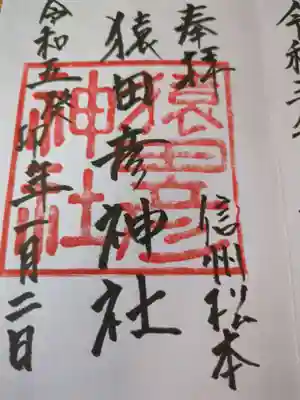 令和
奉拝
信州松本
猿田彦神社
令和五癸卯年一月二日
猿田彦
神社